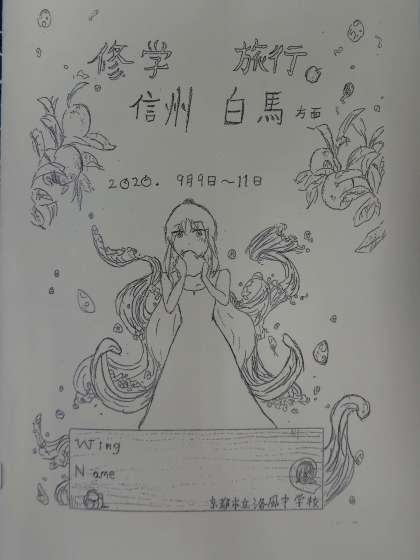 修学 旅行
信州 白馬 方面
2020. 9月9日～11日
Wing
Name
京都市立洛風中学校